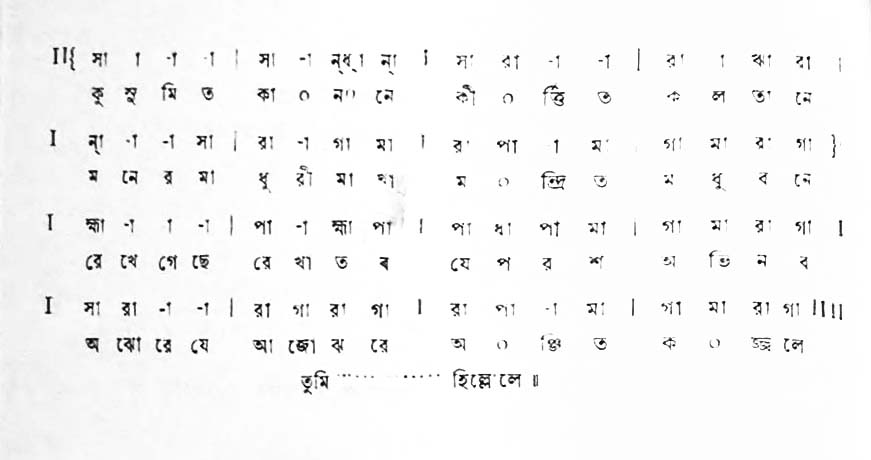 II{ সা া -া -া | সা -া ন্‌ধ্‌া ন্‌া I সা রা -া -া | রা া ঋা রা I
কু সু মি ত কা ০ ন০ নে কী ০ র্ত্তি ত ক ল তা নে
I ন্‌া -া -া সা | রা -া গা মা I রা পা া মা গা মা রা গা }
ম নে র মা ধু রী মা খা ম ০ ন্দ্রি ত ম ধু ব নে
I হ্মা -া া -া | পা -া হ্মা পা I পা ধা পা মা | গা মা রা গা I
রে খে গে ছে রে খা ত ব যে প র শ অ ভি ন ব
I সা রা -া -া | রা গা রা গা I রা পা -া মা | গা মা রা গা IIII
অ ঝো রে যে আ জো ঝ রে অ ০ ঞ্চি ত ক ০ জ্জ লে
তুমি ............ হিল্লোলে ॥